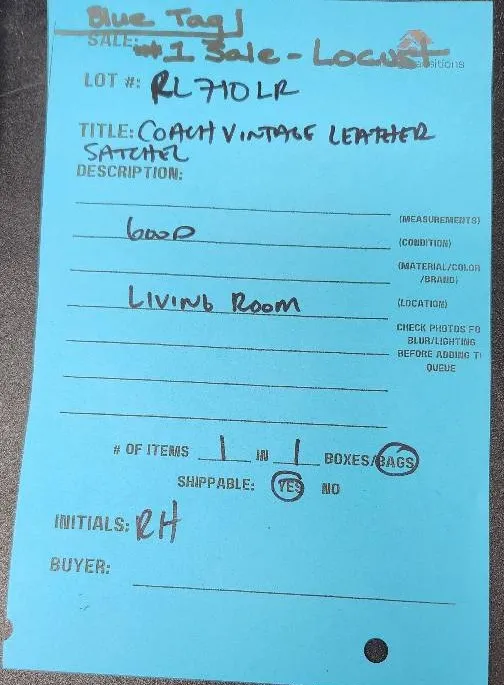 Blue Tag!
SALE: #1 Sale - Locust
LOT #: RL710LR
TITLE: COACH VINTAGE LEATHER
SATCHEL
DESCRIPTION:
(MEASUREMENTS)
GOOD (CONDITION)
(MATERIAL/COLOR
/BRAND)
LIVING ROOM (LOCATION)
CHECK PHOTOS FO
BLUR/LIGHTING
BEFORE ADDING T
QUEUE
# OF ITEMS 1 IN 1 BOXES/BAGS
SHIPPABLE: YES NO
INITIALS: RH
BUYER: